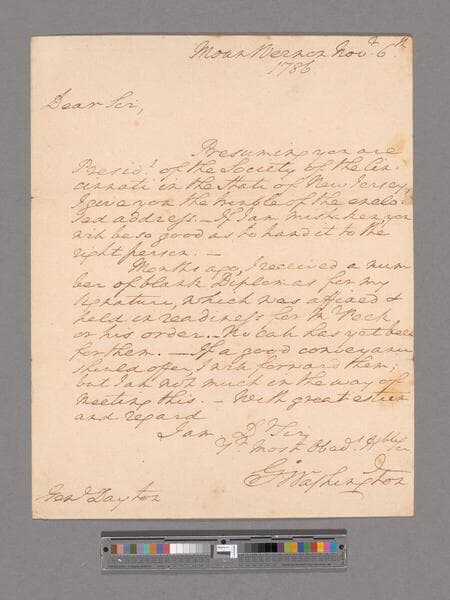 Mount Vernon Novr. 6th
1786
Dear Sir,
Presuming you are
Presidt. of the Society of the Cin-
cinnati in the State of New Jersey,
I give you the trouble of the enclo-
sed address. – If I am mistaken, you
will be so good as to hand it to the
right person. –
Months ago, I received a num-
ber of blank Diplomas for my
signature, which was affixed &
held in readiness for Mr Peck
or his order. – No call has yet been
for them. – If a good conveyance
should offer, I will forward them;
but I am not much in the way of
meeting this. – With great esteem
and regard
I am Dr Sir
Yr. most Obedt. Hble Ser
G: Washington
Genl. Dayton